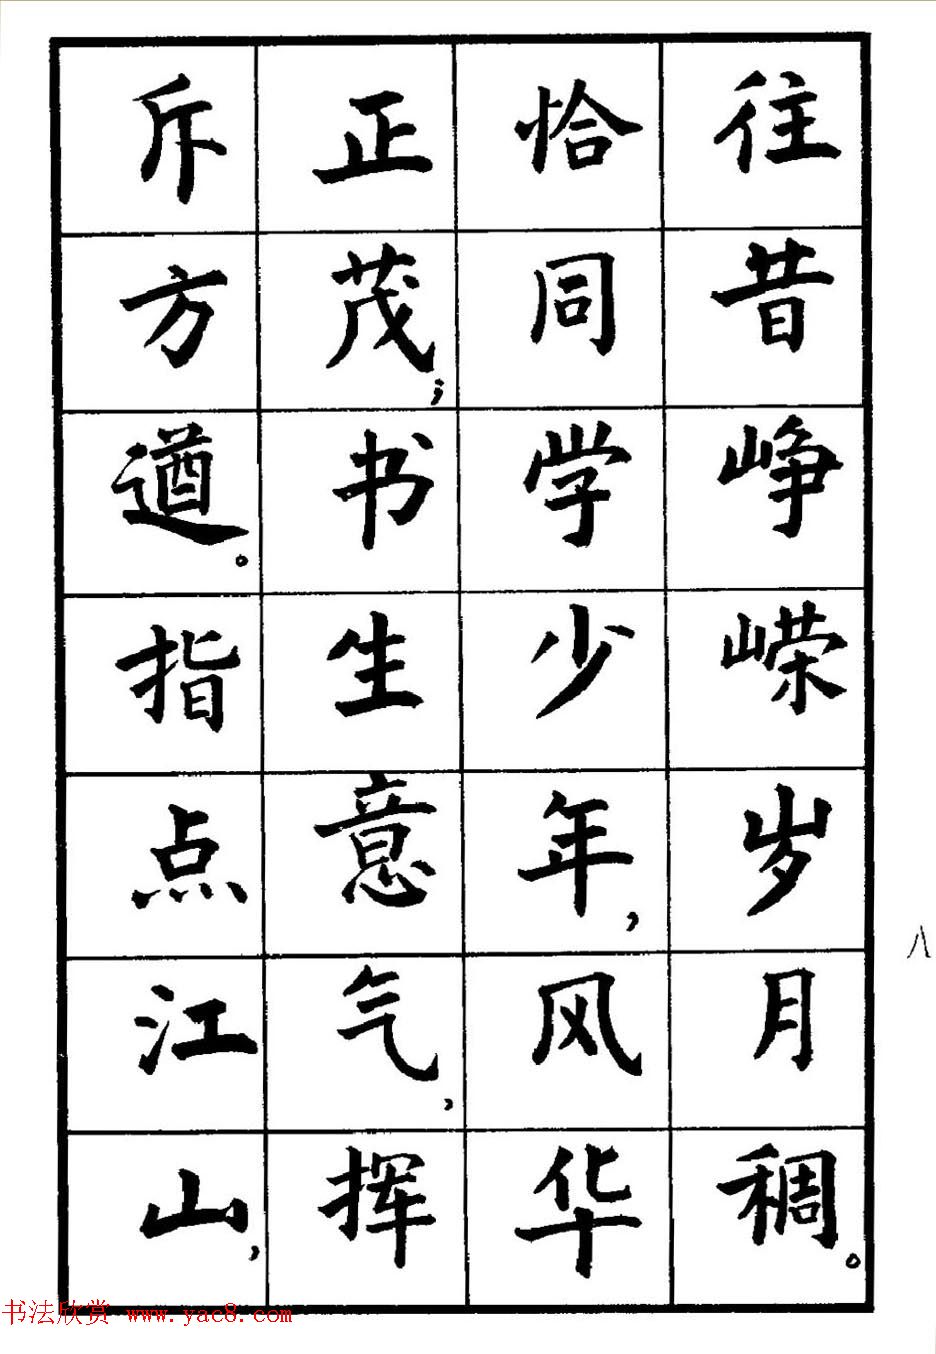 往昔峥嵘岁月稠。
恰同学少年，风华
正茂；书生意气，挥
斥方遒。指点江山，
八
书法欣赏 www.yac8.com